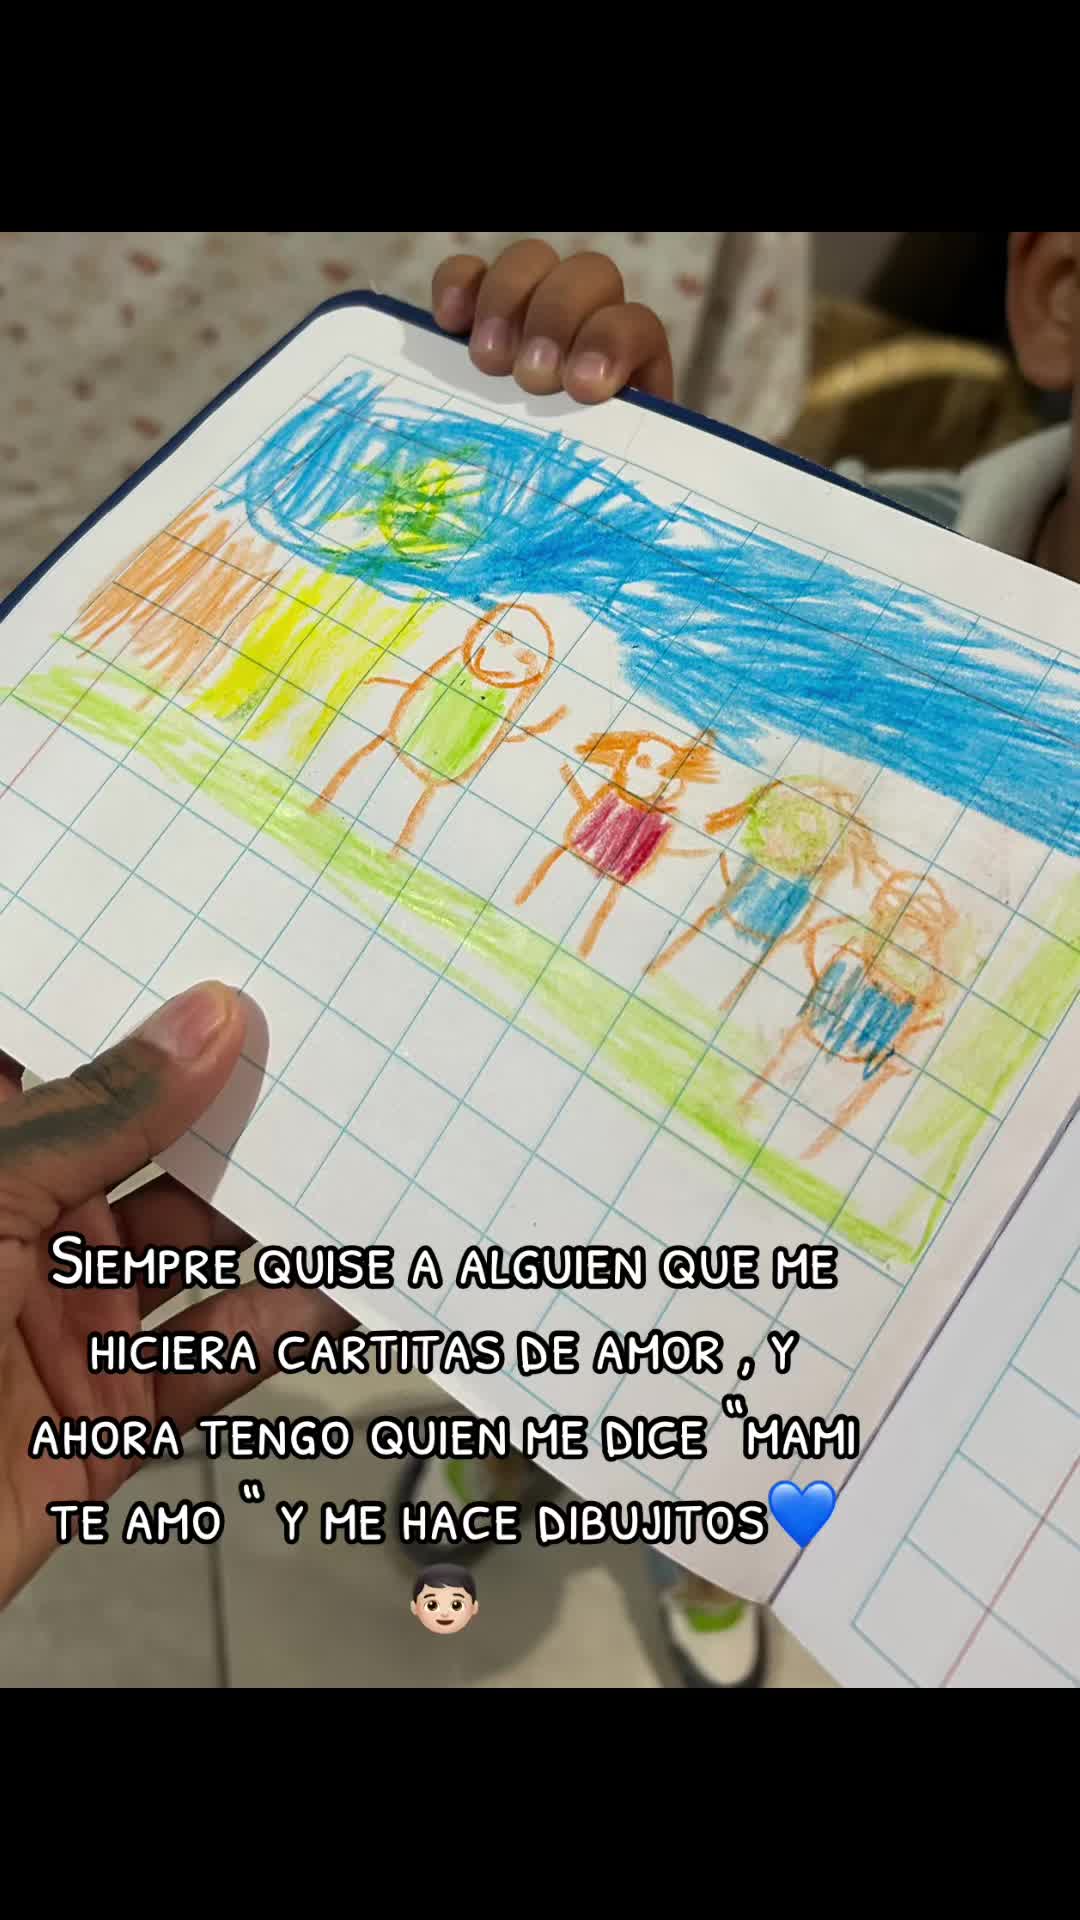 SIEMPRE QUISE A ALGUIEN QUE ME
HICIERA CARTITAS DE AMOR , Y
AHORA TENGO QUIEN ME DICE “MAMI
TE AMO “ Y ME HACE DIBUJITOS💙
👦🏻